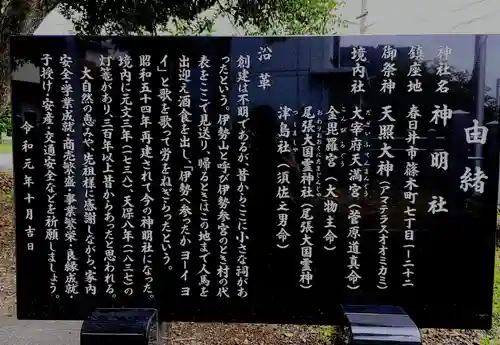 由緒
神社名 神明社
鎮座地 春日井市篠木町七丁目一ー二十二
御祭神 天照大神(アマテラスオオミカミ)
境内社 大宰府天満宮(菅原道真命)
金毘羅宮(大物主命)
尾張大国霊神社(尾張大国霊神)
津島社(須佐之男命)
沿革
創建は不明であるが、昔からここに小さな祠があ
ったという。伊勢山と呼び伊勢参宮のとき村の代
表をここで見送り、帰るときはこの地まで人馬を
出迎え酒食を出し、「伊勢へ参ったか ヨーイ ヨ
イ」と歌を歌って労をねぎらったという。
昭和五十四年再建されて今の神明社になった。
境内に元文三年(一七三八)、天保八年(一八三七)の
灯篭があり三百年以上昔からあったと思われる。
大自然の恵みや、先祖様に感謝しながら、家内
安全・学業成就・商売繁盛・事業繁栄・良縁成就・
子授け・安産・交通安全などを祈願しましょう。
令和元年十月吉日